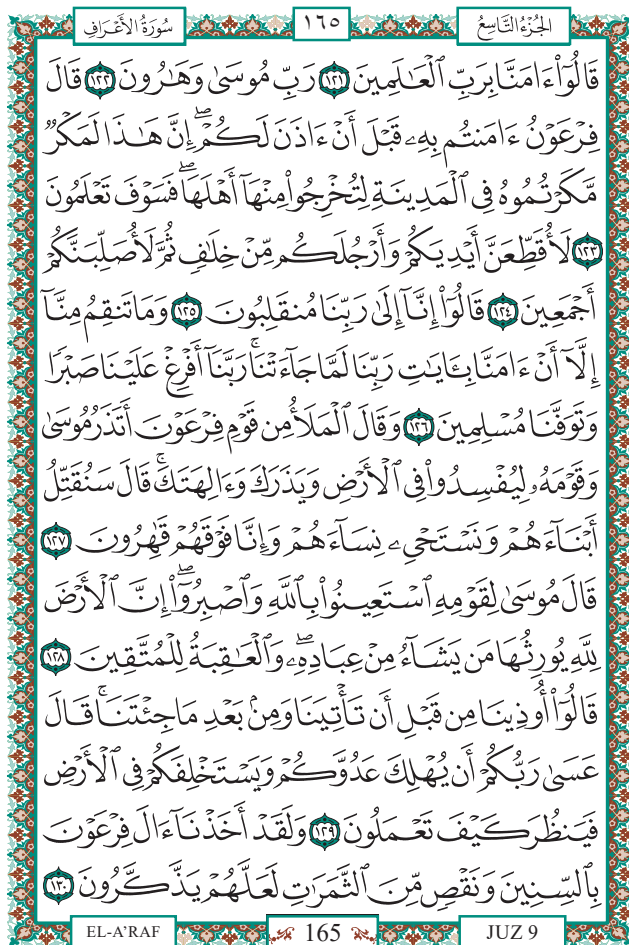 سُورَةُ الأَعْرَافِ ١٦٥ الجُزْءُ التَّاسِعُ
قَالُوٓا۟ ءَامَنَّا بِرَبِّ ٱلْعَـٰلَمِينَ ١٢١ رَبِّ مُوسَىٰ وَهَـٰرُونَ ١٢٢ قَالَ
فِرْعَوْنُ ءَامَنتُم بِهِۦ قَبْلَ أَنْ ءَاذَنَ لَكُمْ ۖ إِنَّ هَـٰذَا لَمَكْرٌ
مَّكَرْتُمُوهُ فِى ٱلْمَدِينَةِ لِتُخْرِجُوا۟ مِنْهَآ أَهْلَهَا ۖ فَسَوْفَ تَعْلَمُونَ
١٢٣ لَأُقَطِّعَنَّ أَيْدِيَكُمْ وَأَرْجُلَكُم مِّنْ خِلَـٰفٍ ثُمَّ لَأُصَلِّبَنَّكُمْ
أَجْمَعِينَ ١٢٤ قَالُوٓا۟ إِنَّآ إِلَىٰ رَبِّنَا مُنقَلِبُونَ ١٢٥ وَمَا تَنقِمُ مِنَّآ
إِلَّآ أَنْ ءَامَنَّا بِـَٔايَـٰتِ رَبِّنَا لَمَّا جَآءَتْنَا ۚ رَبَّنَآ أَفْرِغْ عَلَيْنَا صَبْرًا
وَتَوَفَّنَا مُسْلِمِينَ ١٢٦ وَقَالَ ٱلْمَلَأُ مِن قَوْمِ فِرْعَوْنَ أَتَذَرُ مُوسَىٰ
وَقَوْمَهُۥ لِيُفْسِدُوا۟ فِى ٱلْأَرْضِ وَيَذَرَكَ وَءَالِهَتَكَ ۚ قَالَ سَنُقَتِّلُ
أَبْنَآءَهُمْ وَنَسْتَحْىِۦ نِسَآءَهُمْ وَإِنَّا فَوْقَهُمْ قَـٰهِرُونَ ١٢٧
قَالَ مُوسَىٰ لِقَوْمِهِ ٱسْتَعِينُوا۟ بِٱللَّهِ وَٱصْبِرُوٓا۟ ۖ إِنَّ ٱلْأَرْضَ
لِلَّهِ يُورِثُهَا مَن يَشَآءُ مِنْ عِبَادِهِۦ ۖ وَٱلْعَـٰقِبَةُ لِلْمُتَّقِينَ ١٢٨
قَالُوٓا۟ أُوذِينَا مِن قَبْلِ أَن تَأْتِيَنَا وَمِنۢ بَعْدِ مَا جِئْتَنَا ۚ قَالَ
عَسَىٰ رَبُّكُمْ أَن يُهْلِكَ عَدُوَّكُمْ وَيَسْتَخْلِفَكُمْ فِى ٱلْأَرْضِ
فَيَنظُرَ كَيْفَ تَعْمَلُونَ ١٢٩ وَلَقَدْ أَخَذْنَآ ءَالَ فِرْعَوْنَ
بِٱلسِّنِينَ وَنَقْصٍ مِّنَ ٱلثَّمَرَٰتِ لَعَلَّهُمْ يَذَّكَّرُونَ ١٣٠
EL-A'RAF 165 JUZ 9